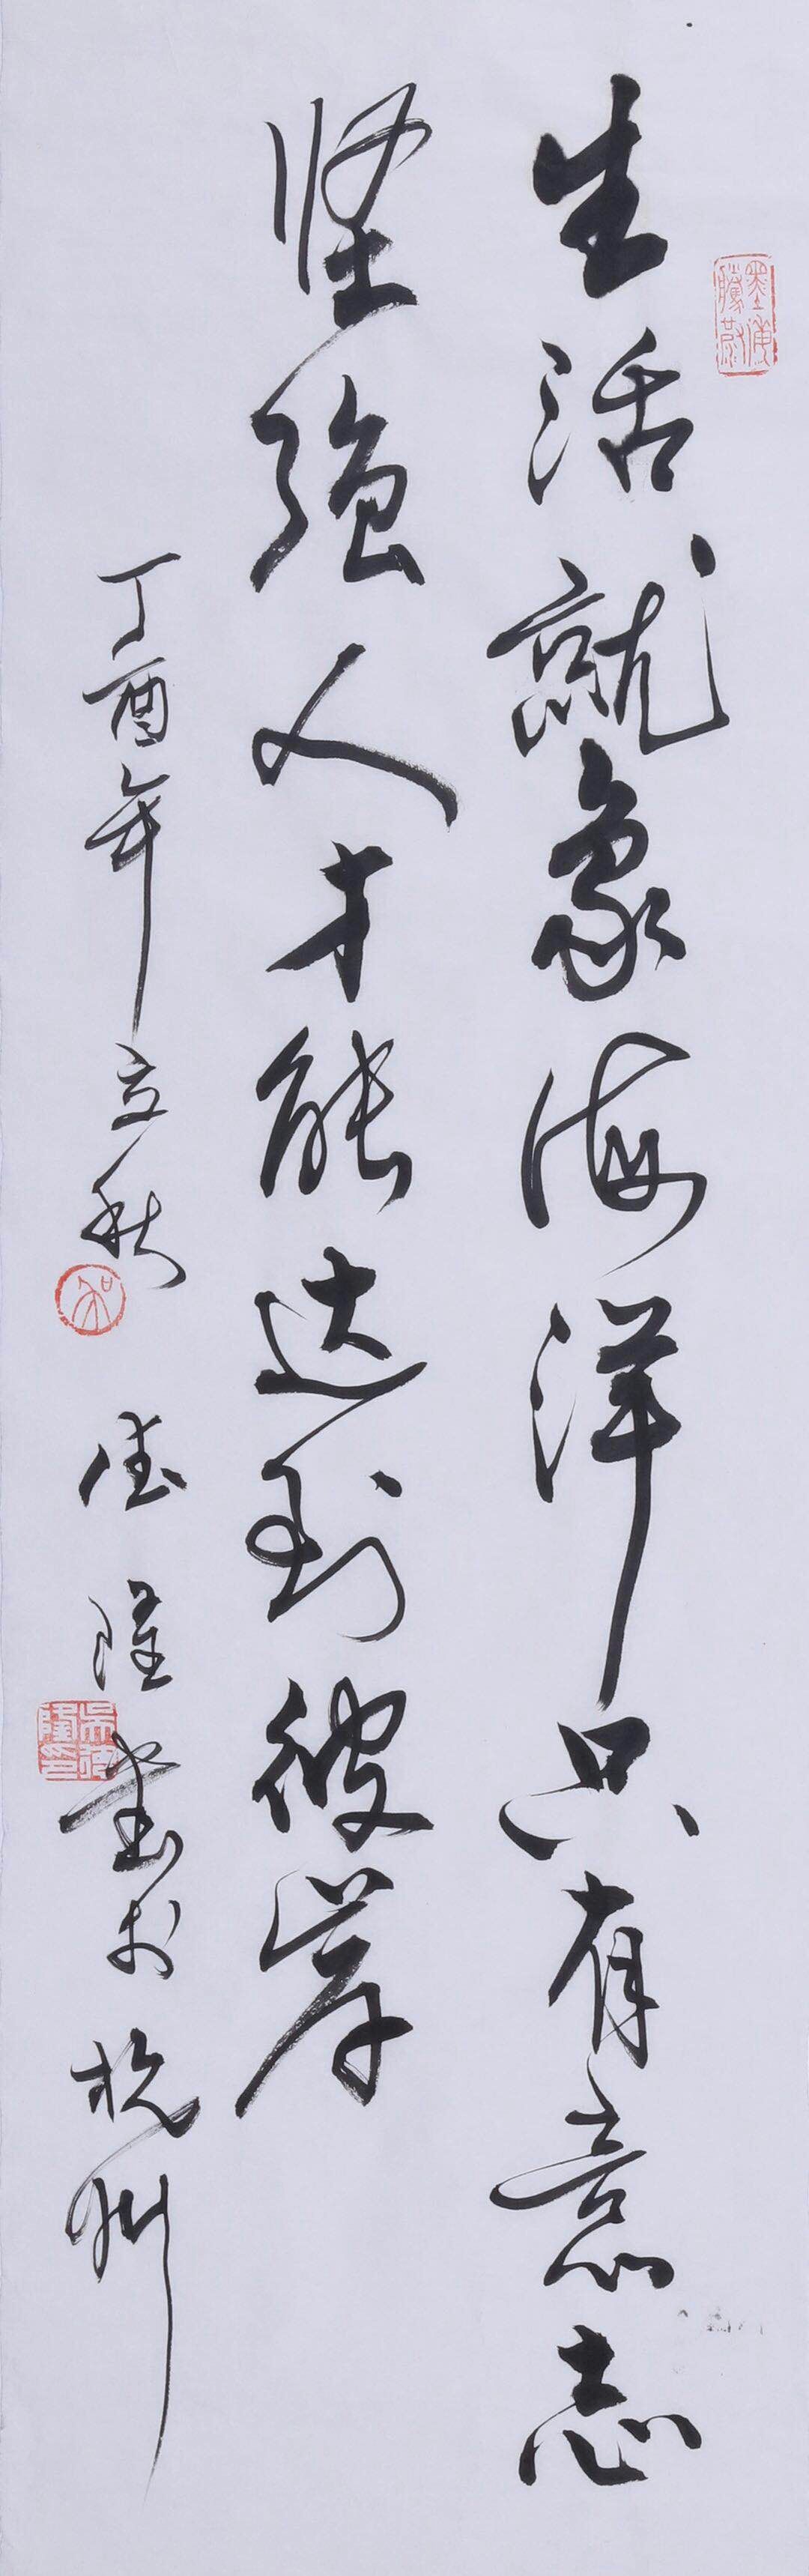 生活就象海洋只有意志
坚强人才能达到彼岸
丁酉年立秋 德隆书于杭州